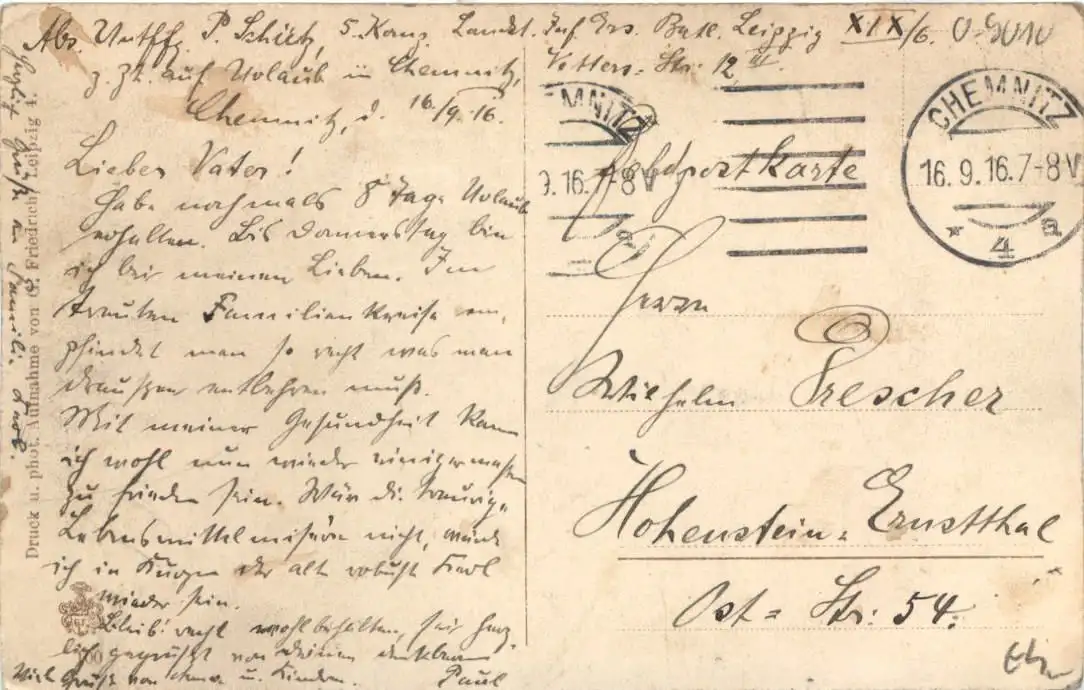 Abs. Untffz. P. Schietz, 5. Komp. Landst. Inf. Ers. Batl. Leipzig XIX/6.
z. Zt. auf Urlaub in Chemnitz, Str. 12 III.
Chemnitz, d. 16/9.16.
Lieber Vater!
Habe nochmals 8 Tage Urlaub
erhalten. Bis Donnerstag bin
ich bei meinen Lieben. Im
trauten Familienkreise em-
pfindet man so recht was man
draußen entbehren muß.
Mit meiner Gesundheit kann
ich wohl nun wieder einigermaßen
zufrieden sein. Wär die traurige
Lebensmittelmisère nicht, würde
ich in Kurzem der alte robuste Kerl
wieder sein.
Bleib' recht wohlbehalten, sei herz-
lich gegrüßt von deinem dankbaren
Paul
Viel Grüße von u. Kindern.
Herzlich Grüße an Familie
Druck u. phot. Aufnahme von G. Friedrich, Leipzig 4.
Feldpostkarte
Herrn
Wilhelm Prescher
Hohenstein-Ernstthal
Ost-Str: 54.
CHEMNITZ
16.9.16.7-8V
* 4 a
MNITZ
9.16.7-8V